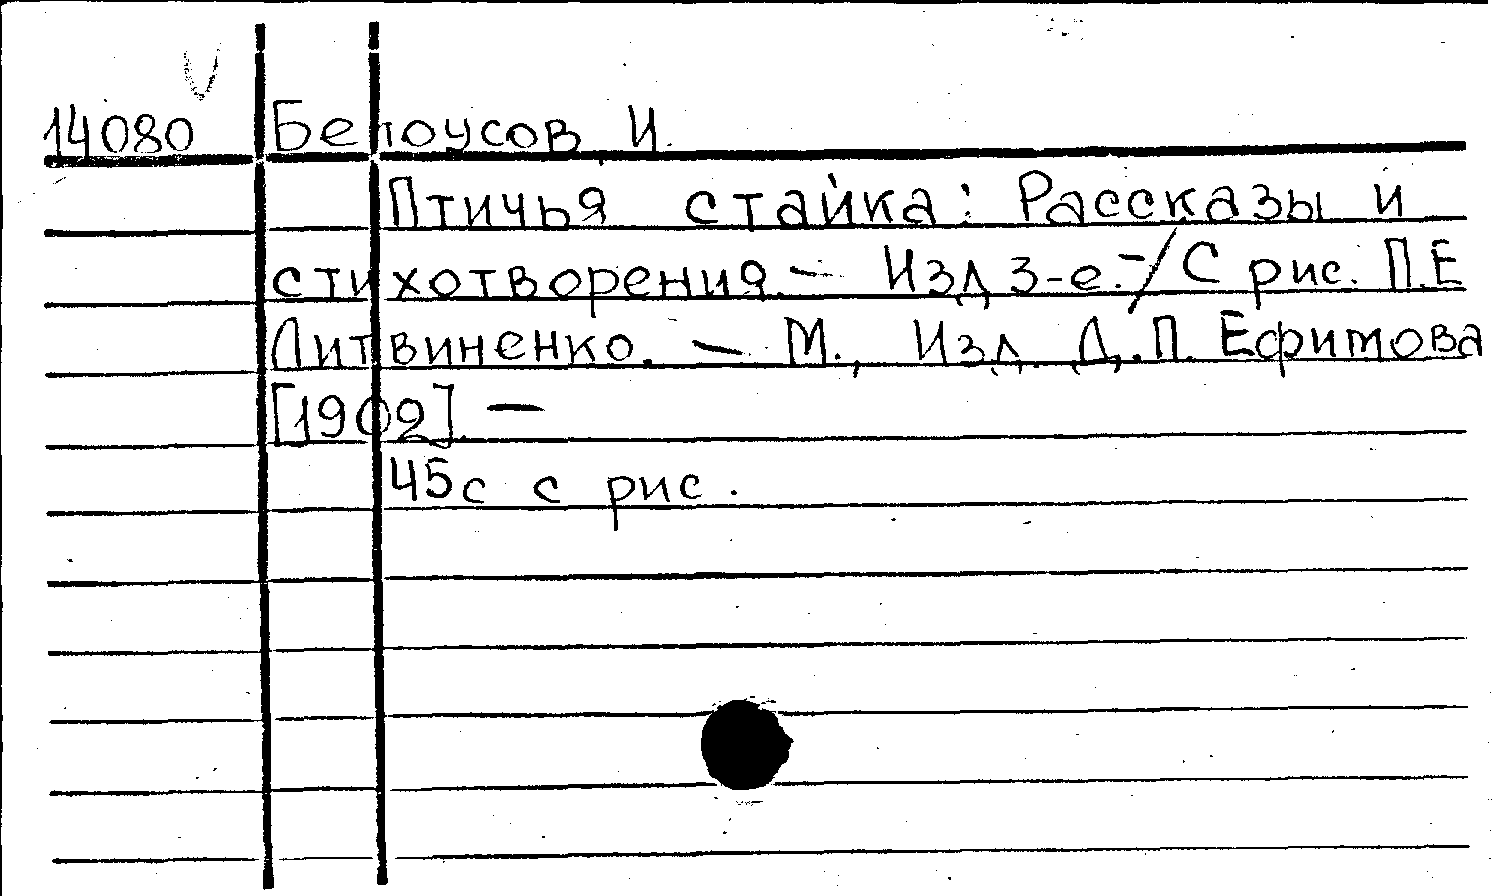 14080 Белоусов И.
Птичья стайка: Рассказы и
стихотворения. - Изд 3-е. - / С рис. П.Е
Литвиненко. - М., Изд. Д.П. Ефимова
[1902]. -
45с с рис.